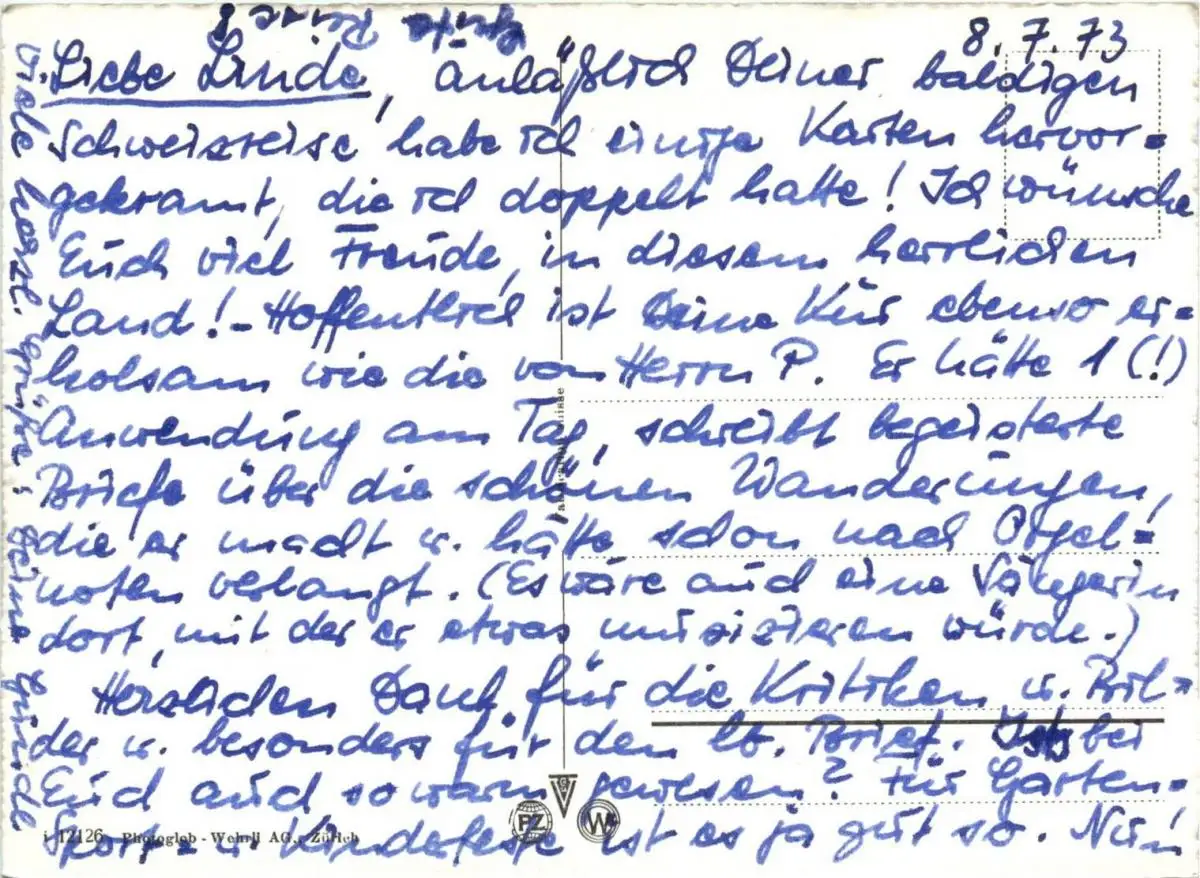 8. 7. 73
Liebe Linde, anläßlich Deiner baldigen
Schweizreise habe ich einige Karten hervor=
gekramt, die ich doppelt hatte! Ich wünsche
Euch viel Freude, in diesem herrlichen
Land! - Hoffentlich ist Deine Kur ebenso er=
holsam wie die von Herrn P. Er hätte 1 (!)
Anwendung am Tag, schreibt begeisterte
Briefe über die schönen Wanderungen,
die er macht u. hätte schon nach Orgel=
noten verlangt. (Es wäre auch eine Sängerin
dort, mit der er etwas musizieren würde.)
Herzlichen Dank für die Kritiken u. Bil=
der u. besonders für den lb. Brief. Ist's bei
Euch auch so warm gewesen? Für Garten=
Sport= u. Kinderfeste ist es ja gut so. Nun
viele herzl. Grüße! Deine
Gute Reise!
i 12126 Photoglob - Wehrli AG., Zürich
PZ
W